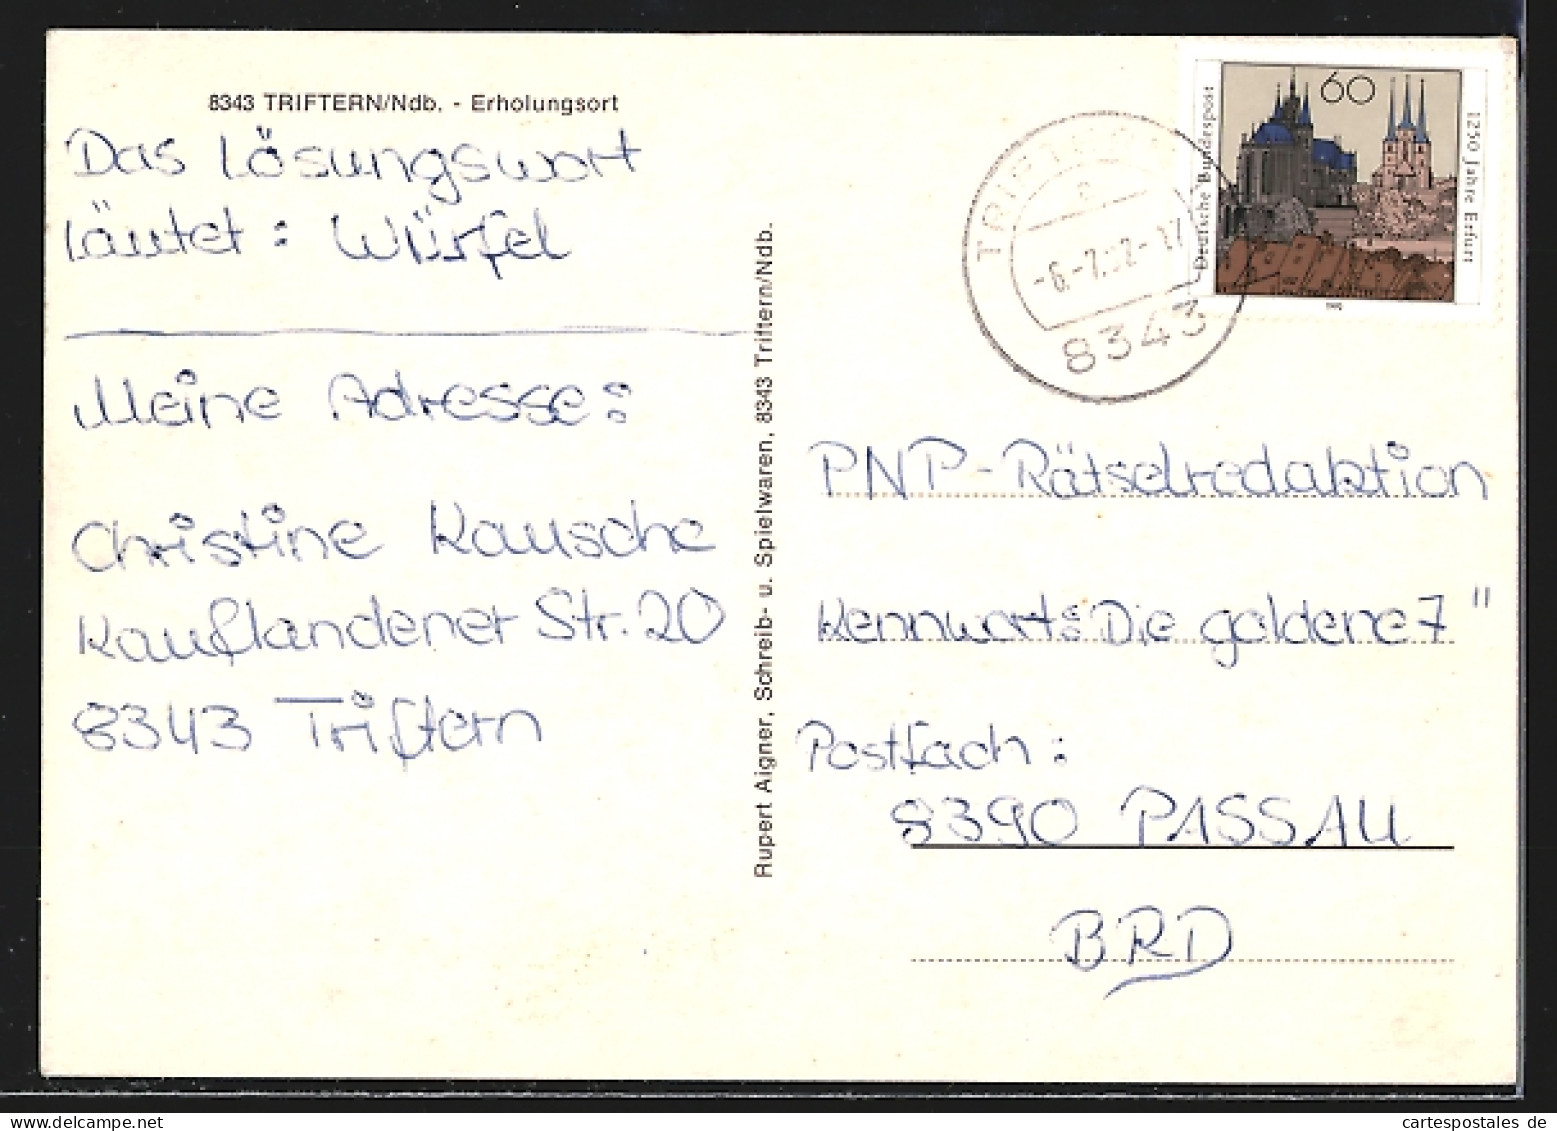 8343 TRIFTERN/Ndb. - Erholungsort
Das Lösungswort
läutet: Würfel
Meine Adresse:
Christine Kausche
Kauflandener Str. 20
8343 Triftern
Rupert Aigner, Schreib- u. Spielwaren, 8343 Triftern/Ndb.
60
Deutsche Bundespost
1250 Jahre Erfurt
8343
PNP-Rätselredaktion
Kennwort: "Die goldene 7"
Postfach:
8390 PASSAU
BRD
cartespostales de